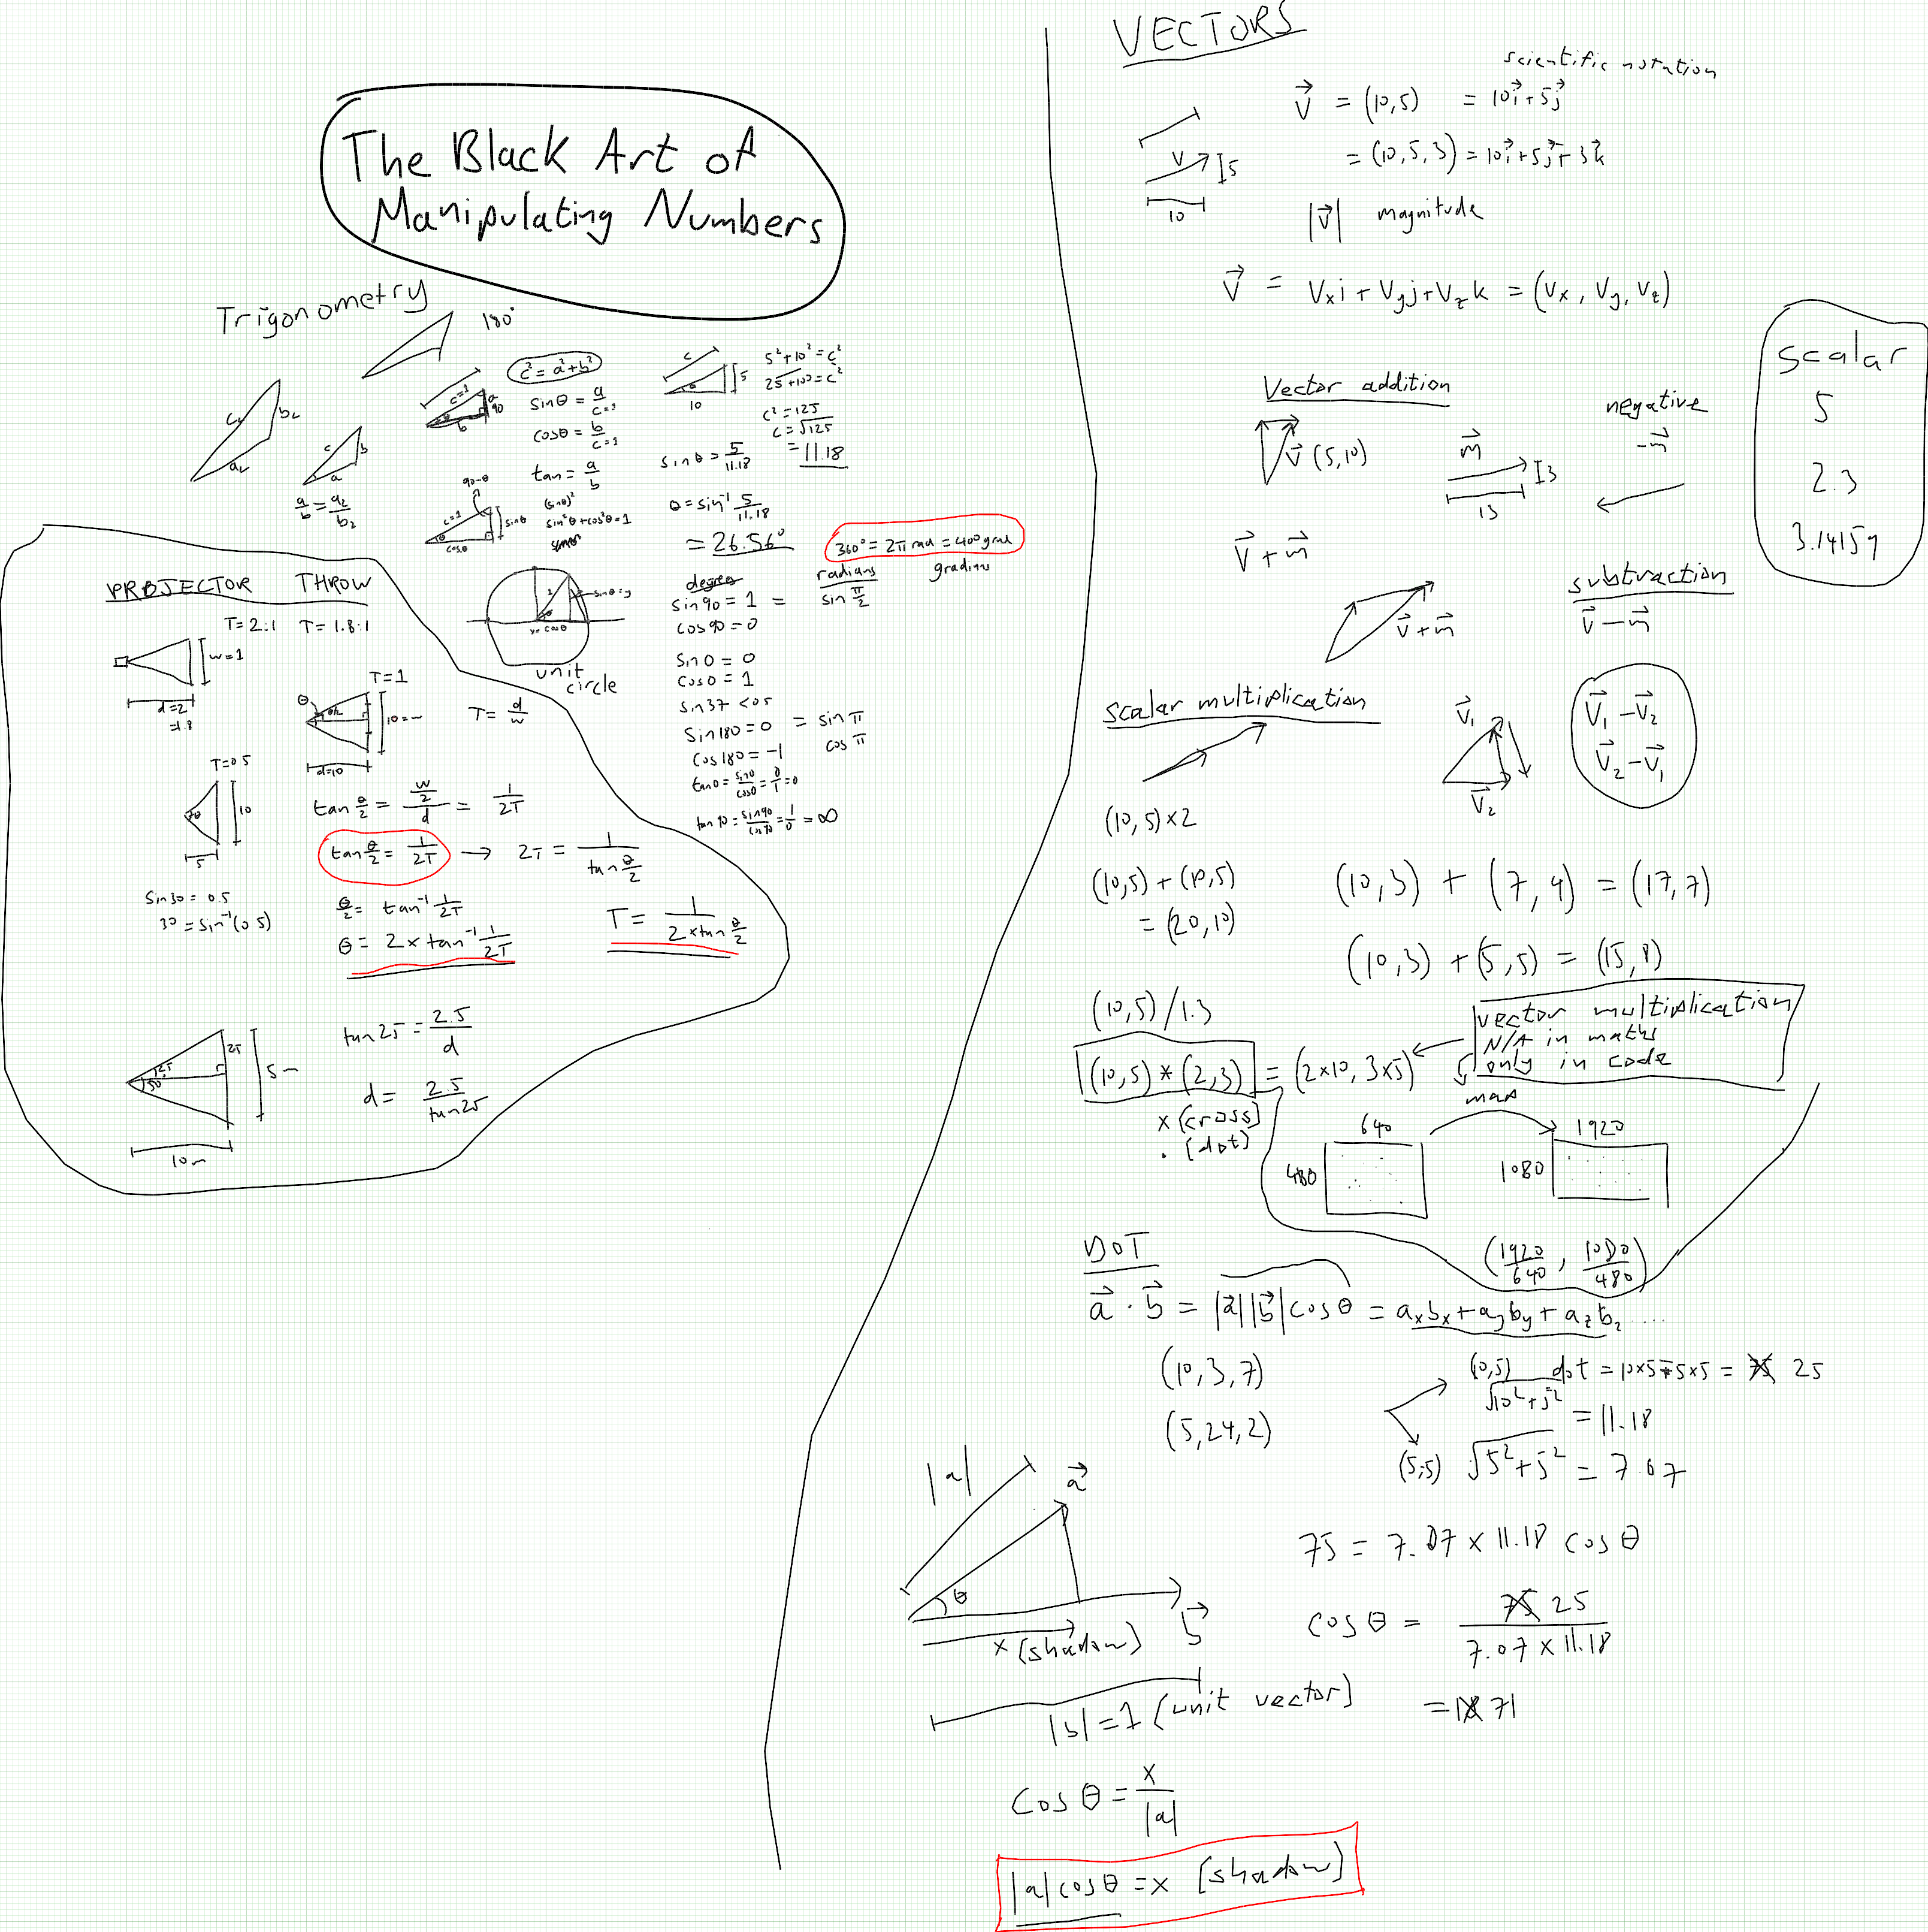 The Black Art of
Manipulating Numbers
Trigonometry
180°
c₂
b₂
a₂
c
b
a
a/b = a₂/b₂
c=1
a
90
θ
b
c² = a² + b²
sinθ = a/c=1
cosθ = b/c=1
tan = a/b
(sinθ)²
sin²θ + cos²θ = 1
90-θ
c=1
sinθ
θ
cosθ
c
5
θ
10
5² + 10² = c²
25 + 100 = c²
c² = 125
c = √125
= 11.18
sinθ = 5/11.18
θ = sin⁻¹ 5/11.18
= 26.56°
360° = 2π rad = 400 grad
degrees
radians
gradians
sin 90 = 1 = sin π/2
cos 90 = 0
sin 0 = 0
cos 0 = 1
sin 37 < 0.5
sin 180 = 0 = sin π
cos 180 = -1 cos π
tan 0 = sin0/cos0 = 0/1 = 0
tan 90 = sin90/cos90 = 1/0 = ∞
1
sinθ=y
θ
x=cosθ
unit
circle
PROJECTOR THROW
T=2:1 T=1.8:1
w=1
d=2
=1.8
T=1
θ
θ/2
10=w
d=10
T = d/w
T=0.5
10
5
tan θ/2 = (w/2)/d = 1/2T
tan θ/2 = 1/2T → 2T = 1/tan θ/2
sin 30 = 0.5
30 = sin⁻¹(0.5)
θ/2 = tan⁻¹ 1/2T
θ = 2 × tan⁻¹ 1/2T
T = 1/2×tan θ/2
2.5
25
50
5m
10m
tan 25 = 2.5/d
d = 2.5/tan 25
VECTORS
scientific notation
v⃗ = (10,5) = 10i⃗ + 5j⃗
= (10,5,3) = 10i⃗ + 5j⃗ + 3k⃗
v
5
10
|v⃗| magnitude
v⃗ = Vxi + Vyj + Vzk = (Vx, Vy, Vz)
scalar
5
2.3
3.14159
Vector addition
v⃗ (5,10)
m⃗
3
13
negative
-m⃗
v⃗ + m⃗
v⃗ + m⃗
subtraction
v⃗ - m⃗
scalar multiplication
v⃗₁
v⃗₂
v⃗₁ - v⃗₂
v⃗₂ - v⃗₁
(10,5) × 2
(10,5) + (10,5)
= (20,10)
(10,3) + (7,4) = (17,7)
(10,3) + (5,5) = (15,8)
(10,5) / 1.3
vector multiplication
N/A in maths
only in code
(10,5) * (2,3) = (2×10, 3×5)
× (cross)
. (dot)
map
640
480
1920
1080
(1920/640, 1080/480)
DOT
a⃗ · b⃗ = |a⃗||b⃗| cosθ = axbx + ayby + azbz ....
(10,3,7)
(5,24,2)
(10,5) dot = 10×5-5×5 = 75 25
√10²+5²
= 11.18
(5,-5) √5²+5² = 7.07
|a|
a⃗
θ
b⃗
x (shadow)
|b| = 1 (unit vector)
75 = 7.07 × 11.18 cosθ
cosθ = 75 25 / 7.07 × 11.18
= 18 71
cosθ = x/|a|
|a| cosθ = x (shadow)